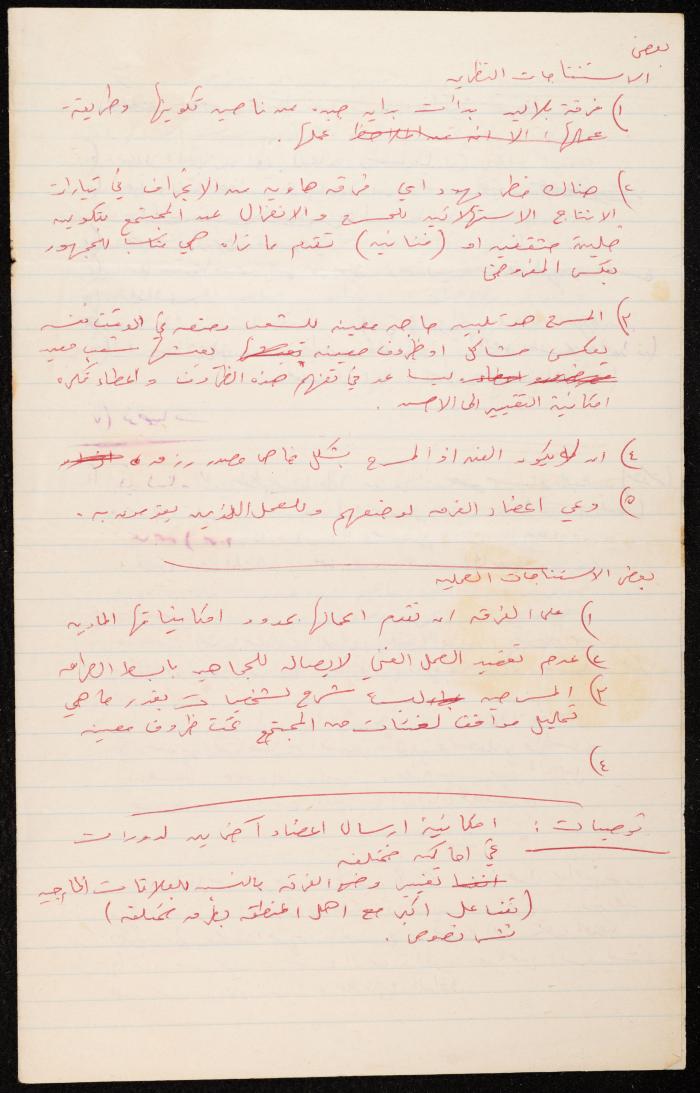 بعض
الاستنتاجات النظرية
١) فرقة بلالين بدأت بداية جيده من ناحية تكوينها وطريقة
عملها.
٢) هناك خطر يهدد اي فرقه هاويه من الانجراف في تيارات
الانتاج الاستهلاكيه للمسرح والانعزال عن المجتمع بتكوين
مثقفين او (فنانين) تقدم ما تراه هي مناسبا للجمهور
بعكس المفروض
٣) المسرح هو تلبية حاجه معينه للشعب وبنفس الوقت
يعكس مشاكل او ظروف معينه يعيشها شعب معين
ليساعد في تفهم هذه الظروف واعطاء فكره
امكانية التغيير الى الاحسن.
٤) ان لا يكون الفن او المسرح بشكل خاص مصدر رزق
٥) وعي اعضاء الفرقه لوضعهم وللعمل اللذين يقومون به.
بعض الاستنتاجات العمليه
١) على الفرقه ان تقدم اعمالها بحدود امكانياتها الماديه
٢) عدم تعقيد العمل الفني لايصاله للجماهير بابسط الطرق
٣) المسرحيه ليست شرح لشخصيات بقدر ما هي
تحليل مواقف لفئات من المجتمع تحت ظروف معينه
٤)
توصيات: امكانية ارسال اعضاء آخرين لدورات
في اماكن مختلفه
تغيير وضع الفرقه بالنسبه للعلاقات الخارجيه
(تفاعل اكبر مع اهل المنطقه بطرق مختلفه)
نشر نصوص.